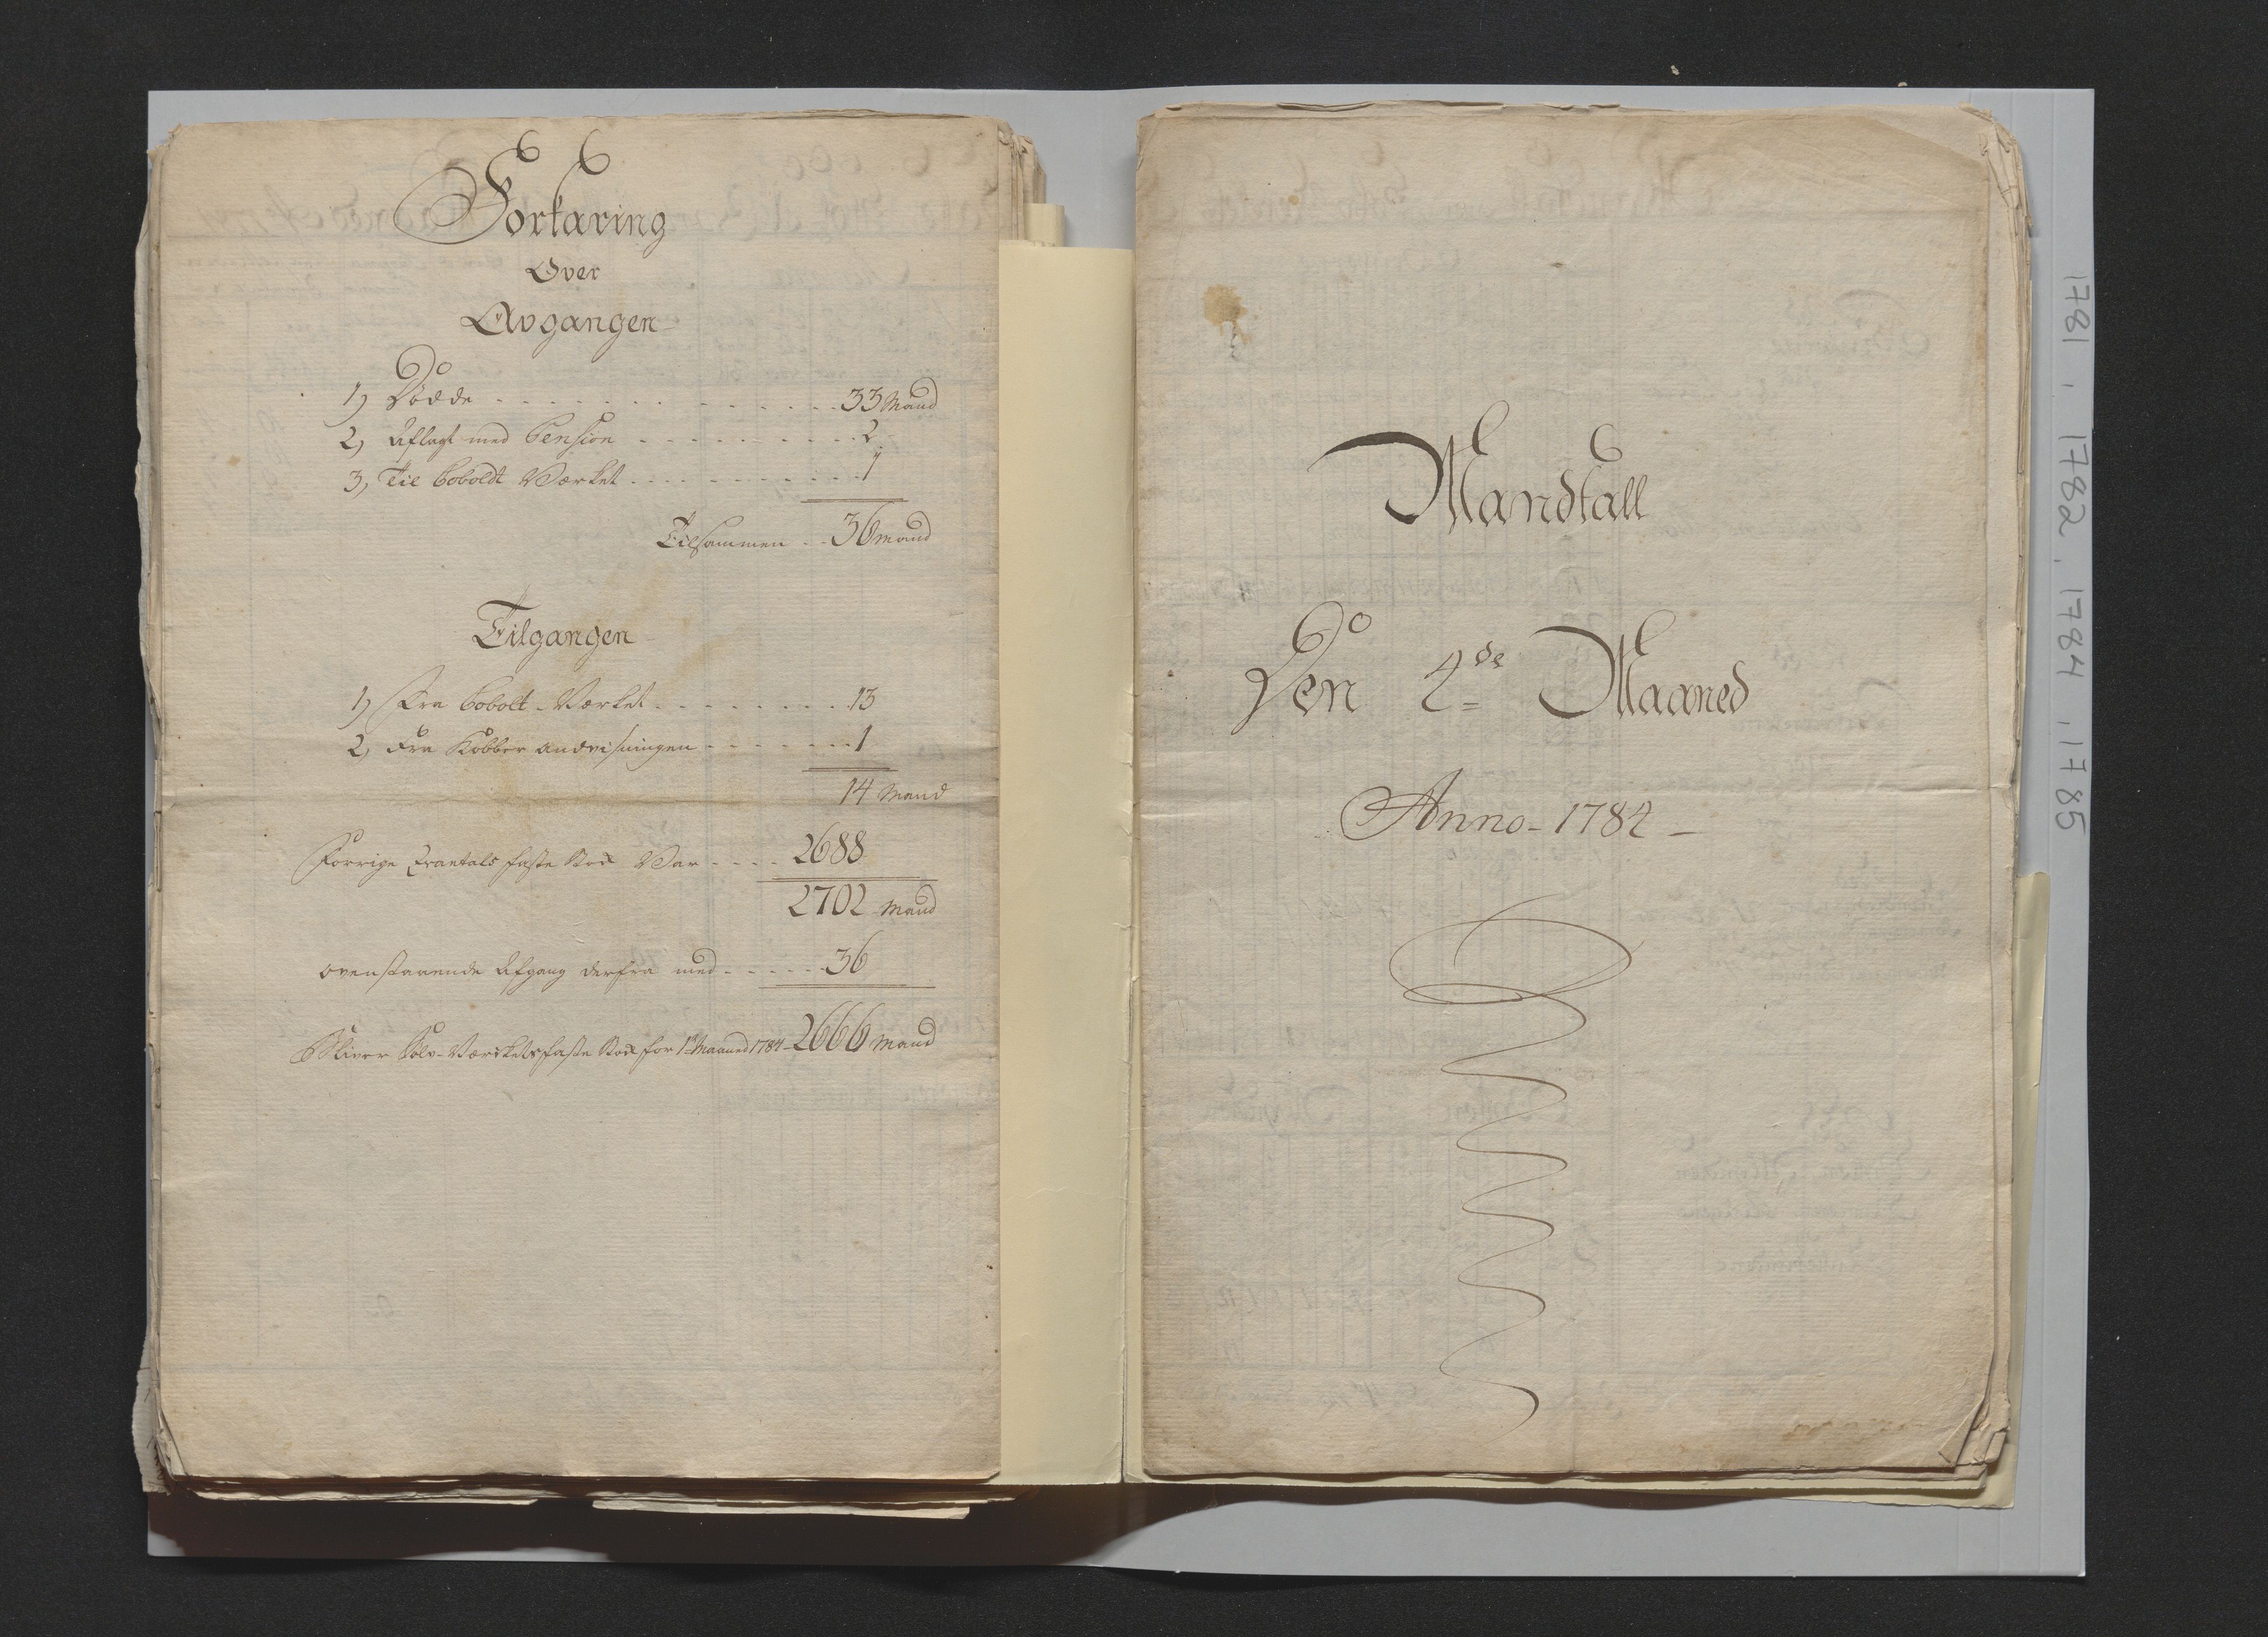 Forkaring
Over
Avgangen
1) Dödde - - - - - - - - - - 33 Mand
2) Aflagt med Pension - - - - - - - - - 2
3) Til Coboldt Værket - - - - - - - - - 1
Tilsammen - - 36 mand
Tilgangen
1) Fra Cobolt-Værket - - - - - - - - 13
2) Fra Kobber andvisningen - - - - - - - 1
14 Mand
Forrige qvartals faste Stok Var - - - - 2688
2702 Mand
ovenstaaende Afgang derfra med - - - - - - 36
Bliver Sölv-Værckets faste Stok for 1te Maaned 1784 - 2666 Mand
Mandtall
Den 4de Maaned
Anno - 1784 -
1781, 1782, 1784, 1785